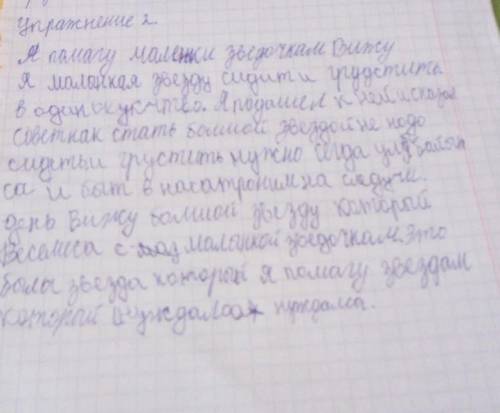 Упражнение 2.
Я помагу маленки зведочкам Вижу
я малонкая звезду сидит и грустить
в одинокуктво. Я подашел к ней и сказал
совет как стать болшой звездой не надо
сидеть и грустить нужно сегда улыбайтя
са и быт в насатроним на следучи
день Вижу болшой звезду которой
Веселиса с малонкой зведочкам. Это
была звезда который я помагу звездам
который нуждама.